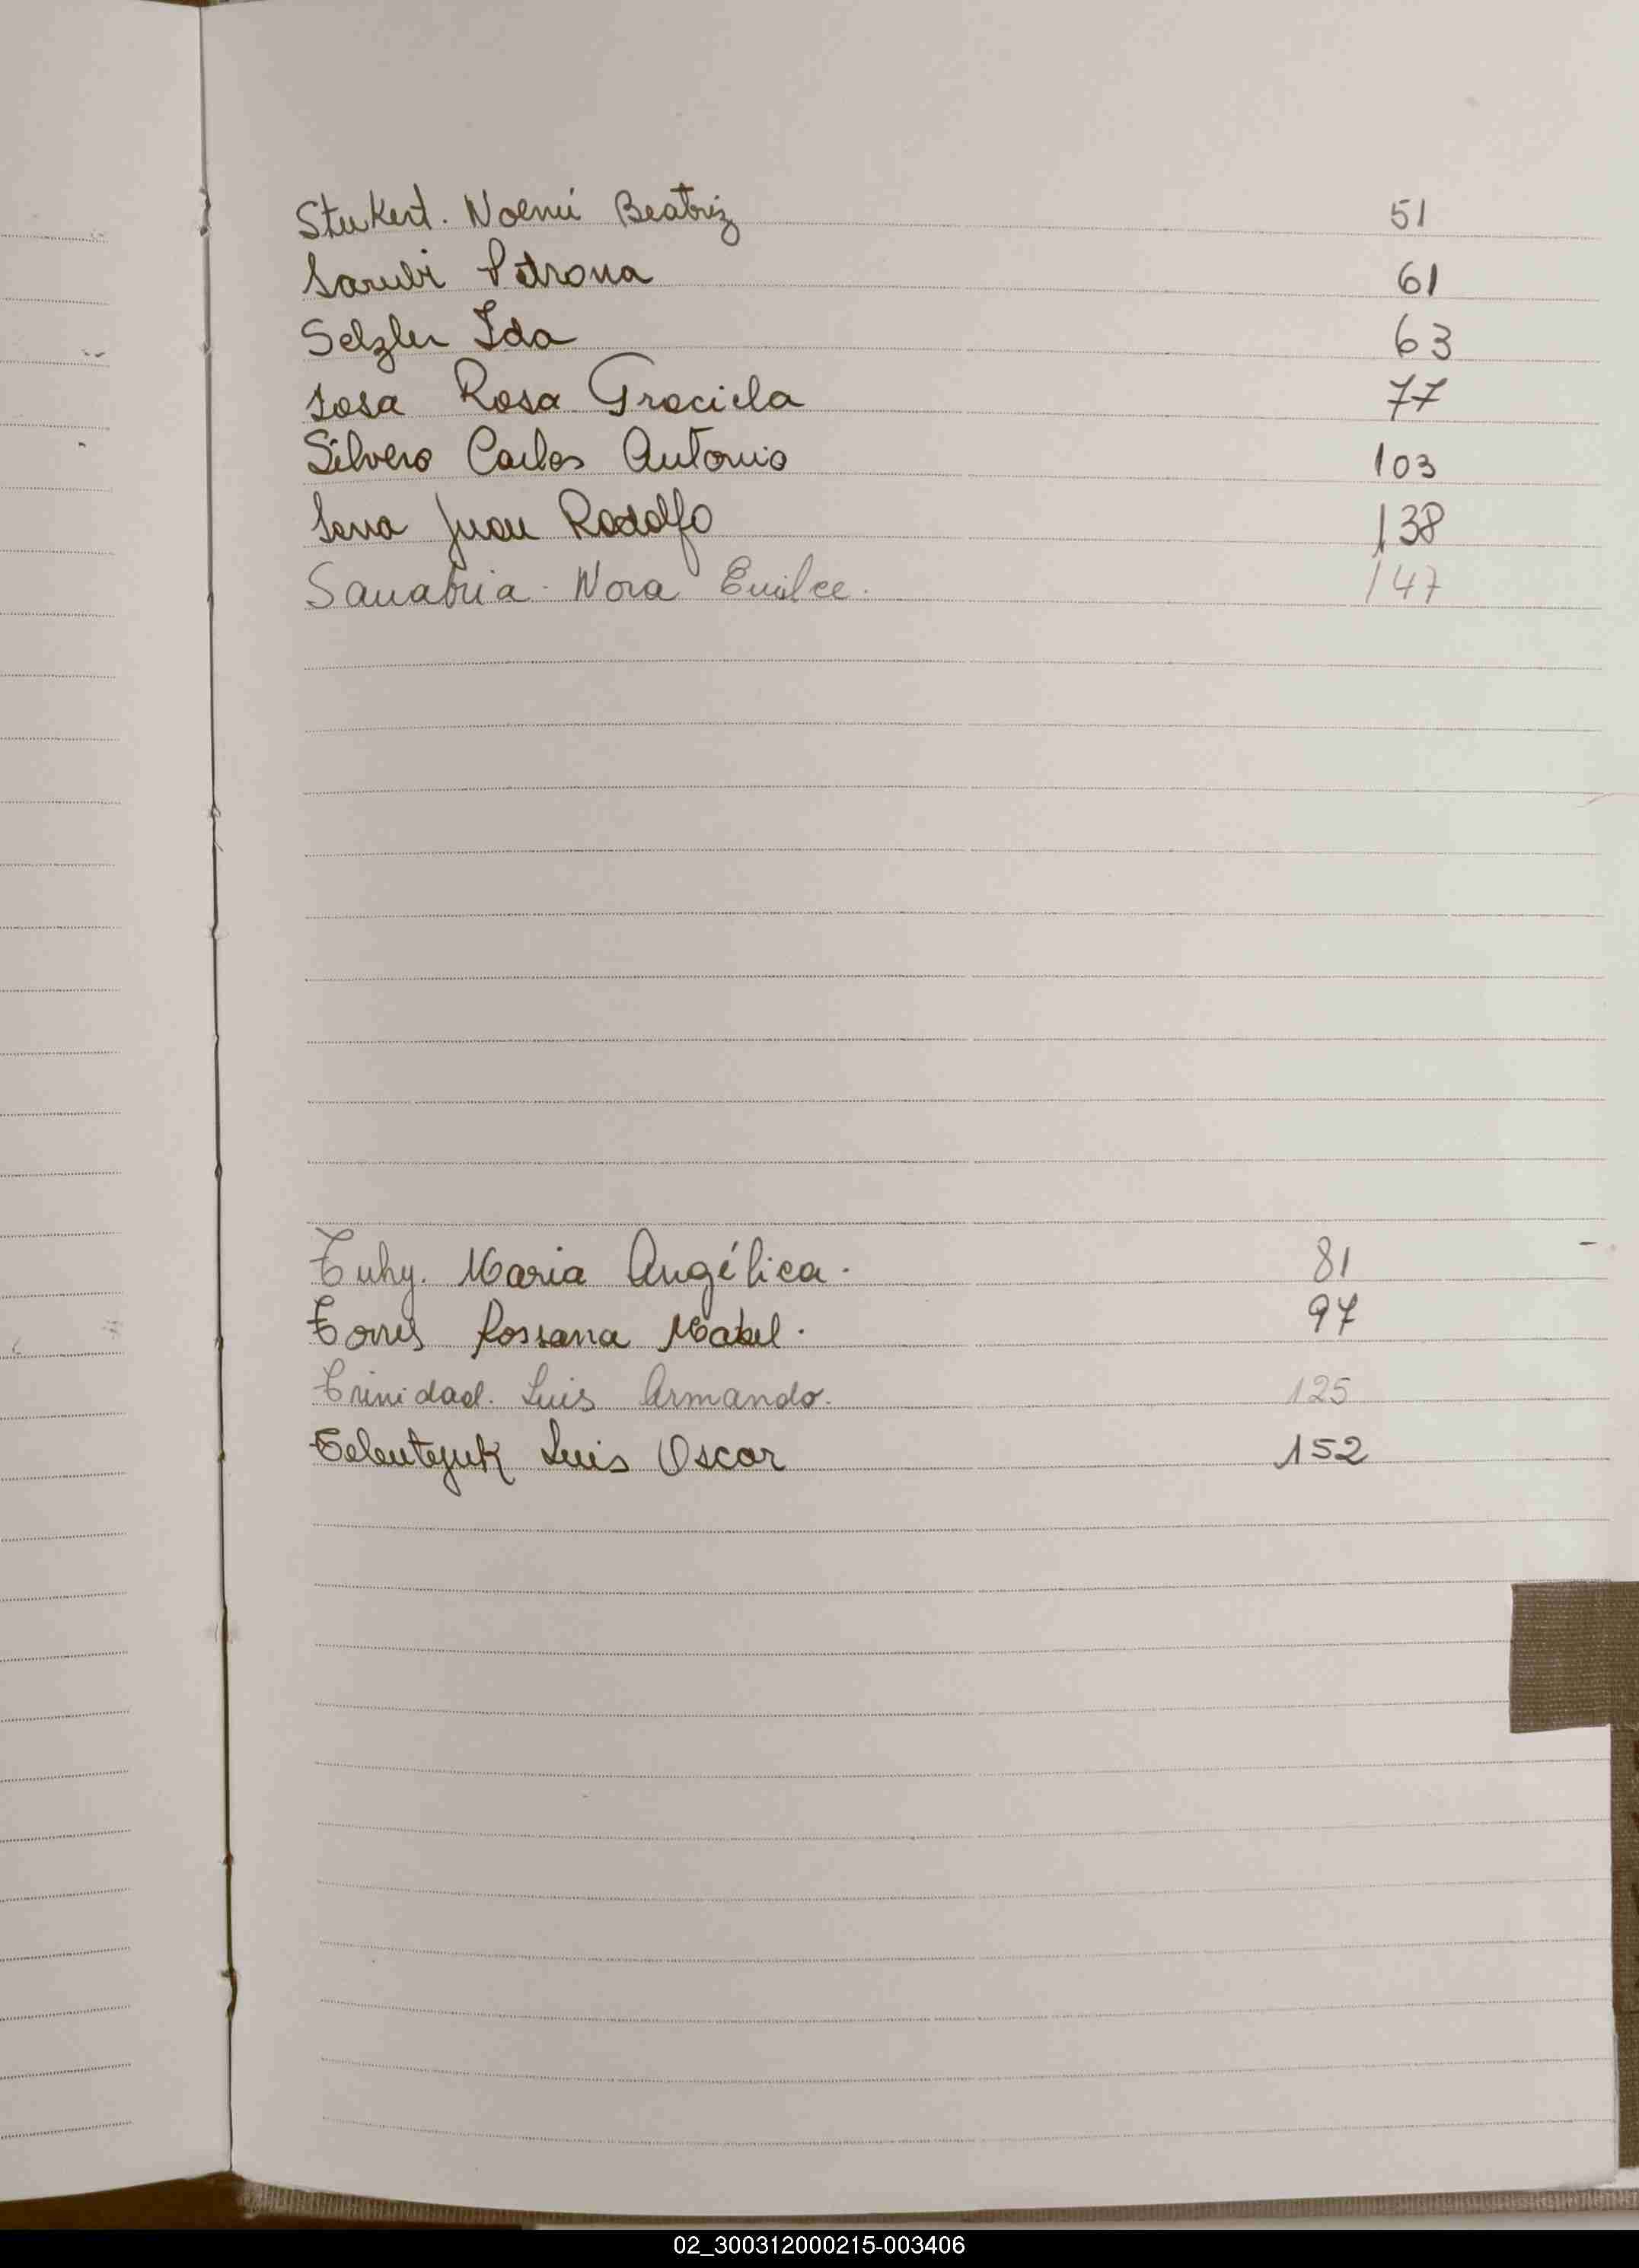 Stukert. Noemí Beatriz 51
Sarubi Petrona 61
Selzler Ida 63
Sosa Rosa Graciela 77
Silvero Carlos Antonio 103
Sena Juan Rodolfo 138
Sanabria. Nora Emilce. 147
Tuhy. Maria Angélica. 81
Torres Rossana Mabel. 97
Trinidad. Luis Armando. 125
Luis Oscar 152
02_300312000215-003406